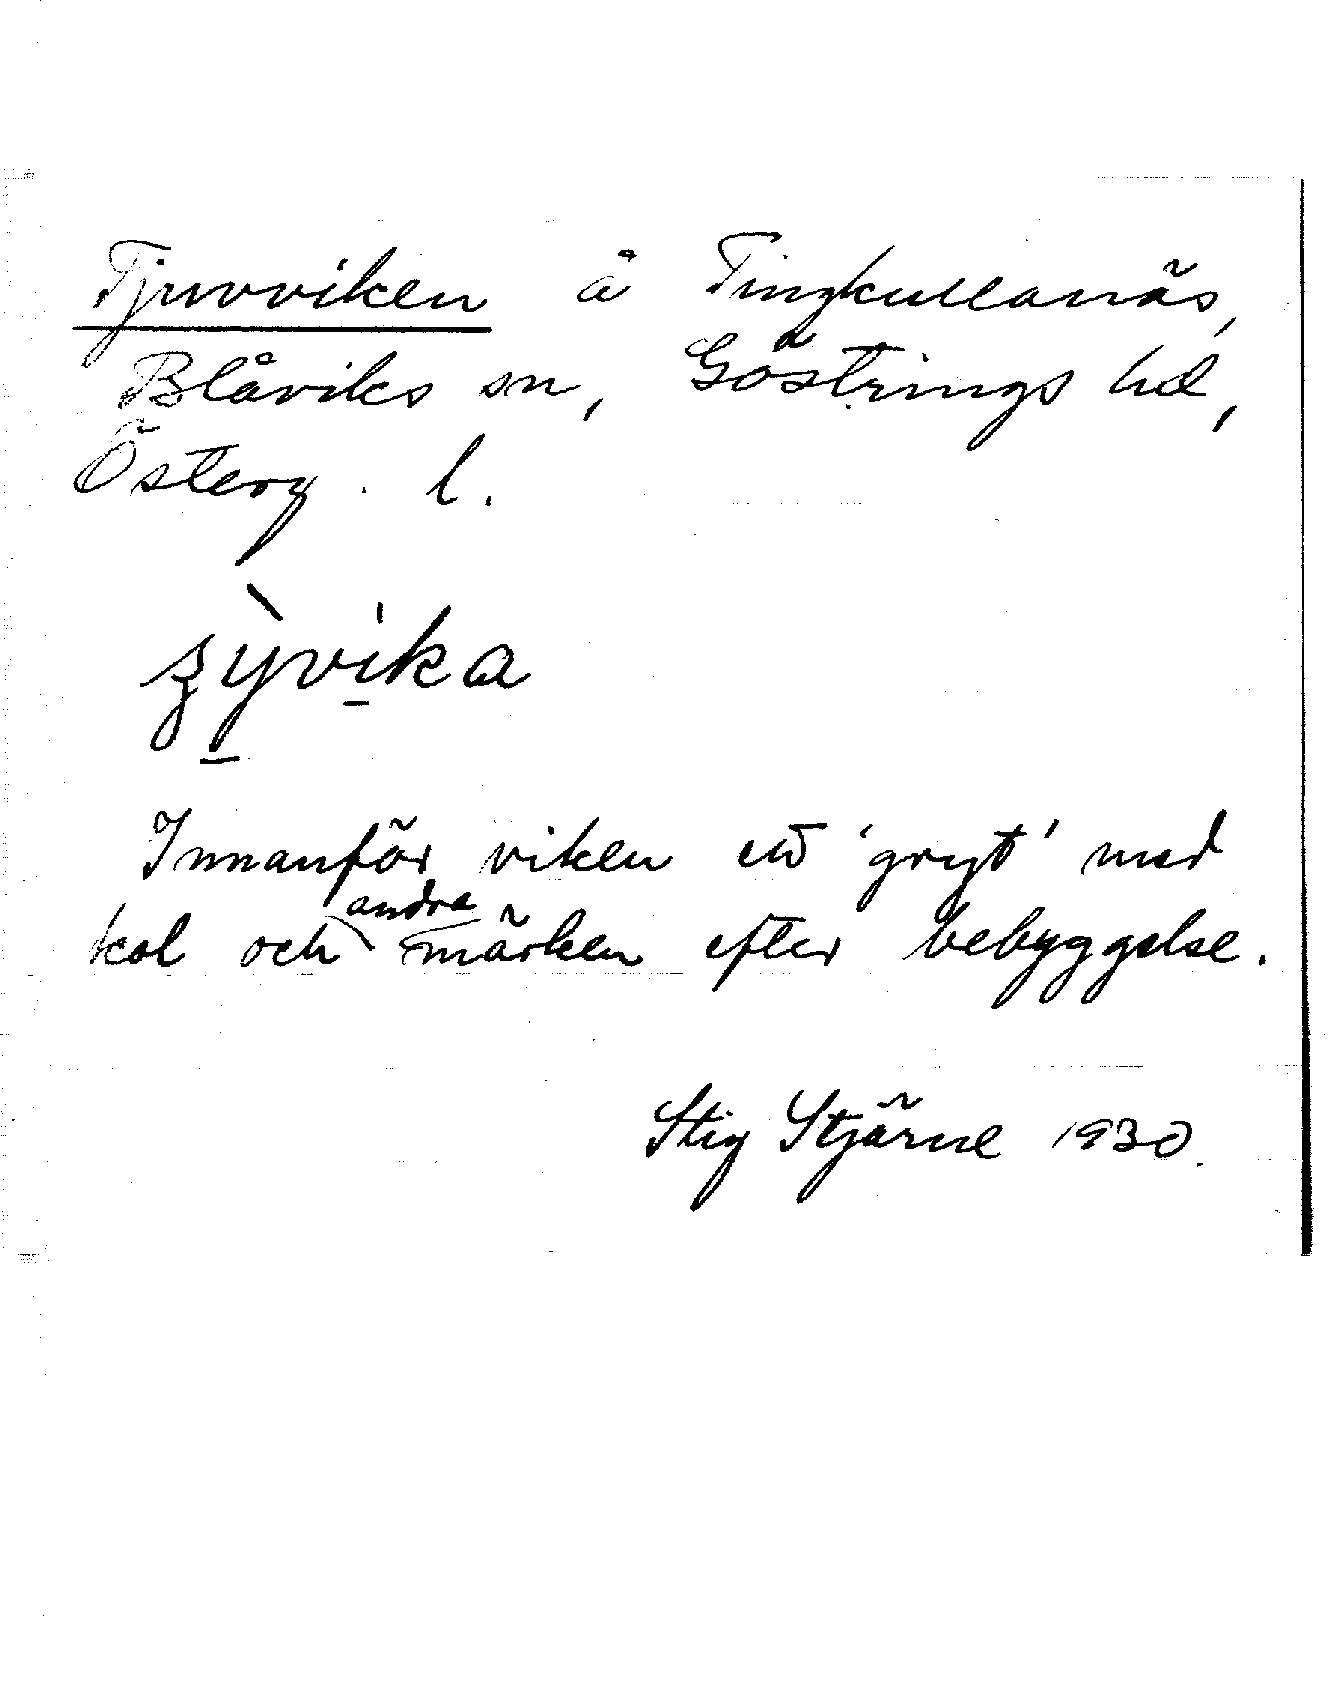 Tjuvviken å Tingkullanäs,
Blåviks sn, Göstrings hd,
Österg. l.
zỳvika
Innanför viken ett 'gryt' med
kol och andra märken efter bebyggelse.
Stig Stjärne 1930.